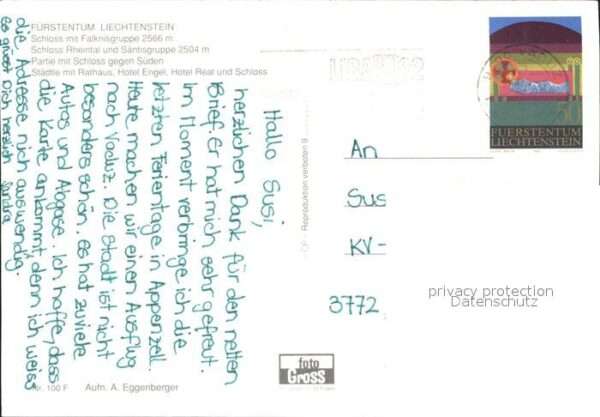 FÜRSTENTUM LIECHTENSTEIN
Schloss mit Falknisgruppe 2566 m
Schloss Rheintal und Säntisgruppe 2504 m
Partie mit Schloss gegen Süden
Städtle mit Rathaus, Hotel Engel, Hotel Real und Schloss
Hallo Susi,
herzlichen Dank für den netten
Brief. Er hat mich sehr gefreut.
Im Moment verbringe ich die
letzten Ferientage in Appenzell.
Heute machen wir einen Ausflug
nach Vaduz. Die Stadt ist nicht
besonders schön. Es hat zuviele
Autos und Abgase. Ich hoffe, dass
die Karte ankommt, denn ich weiss
die Adresse nich auswendig.
Es grüsst Dich herzlich Sandra
Reproduktion verboten
FUERSTENTUM
LIECHTENSTEIN
50
An
Sus
KV-
3772
privacy protection
Datenschutz
foto
Gross
Nr. 100 F
Aufn. A. Eggenberger